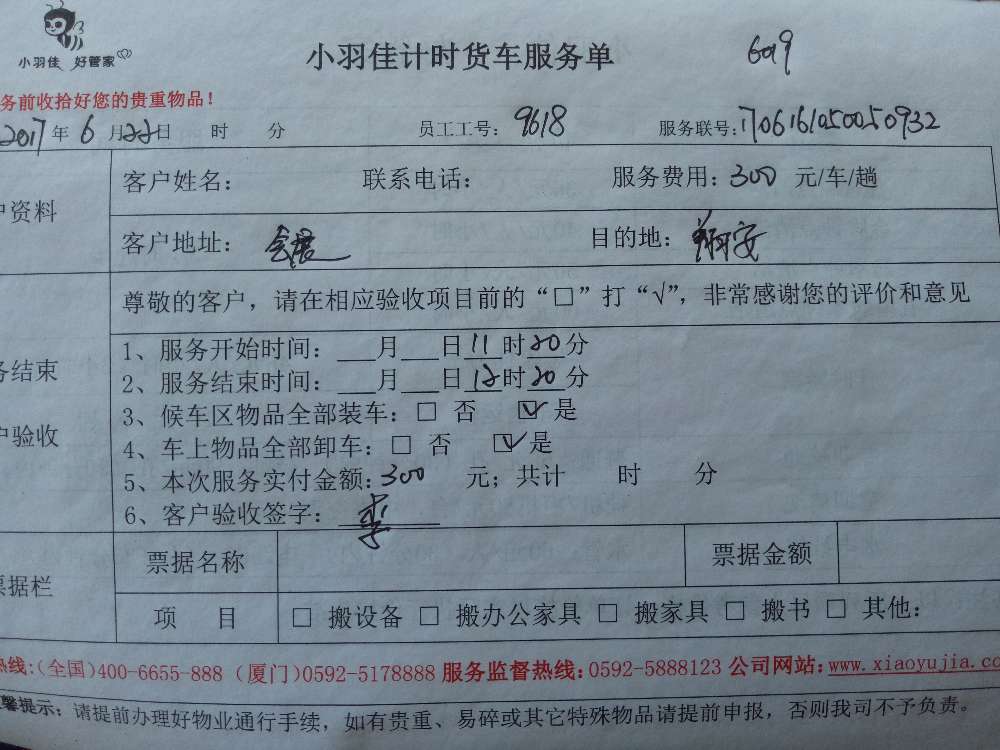 小羽佳 好管家
小羽佳计时货车服务单
务前收拾好您的贵重物品！
2017年6月22日 时 分 员工工号：9618 服务联号：1706161050050932
户资料 客户姓名： 联系电话： 服务费用：300 元/车/趟
客户地址： 目的地：翔安
尊敬的客户，请在相应验收项目前的“□”打“√”，非常感谢您的评价和意见
务结束
户验收
1、服务开始时间：___月___日11时20分
2、服务结束时间：___月___日12时20分
3、候车区物品全部装车：□ 否 ☑ 是
4、车上物品全部卸车：□ 否 ☑ 是
5、本次服务实付金额：300 元；共计 时 分
6、客户验收签字：李
票据栏 票据名称 票据金额
项 目 □ 搬设备 □ 搬办公家具 □ 搬家具 □ 搬书 □ 其他：
热线：（全国）400-6655-888（厦门）0592-5178888 服务监督热线：0592-5888123 公司网站：www.xiaoyujia.co
温馨提示：请提前办理好物业通行手续，如有贵重、易碎或其它特殊物品请提前申报，否则我司不予负责。